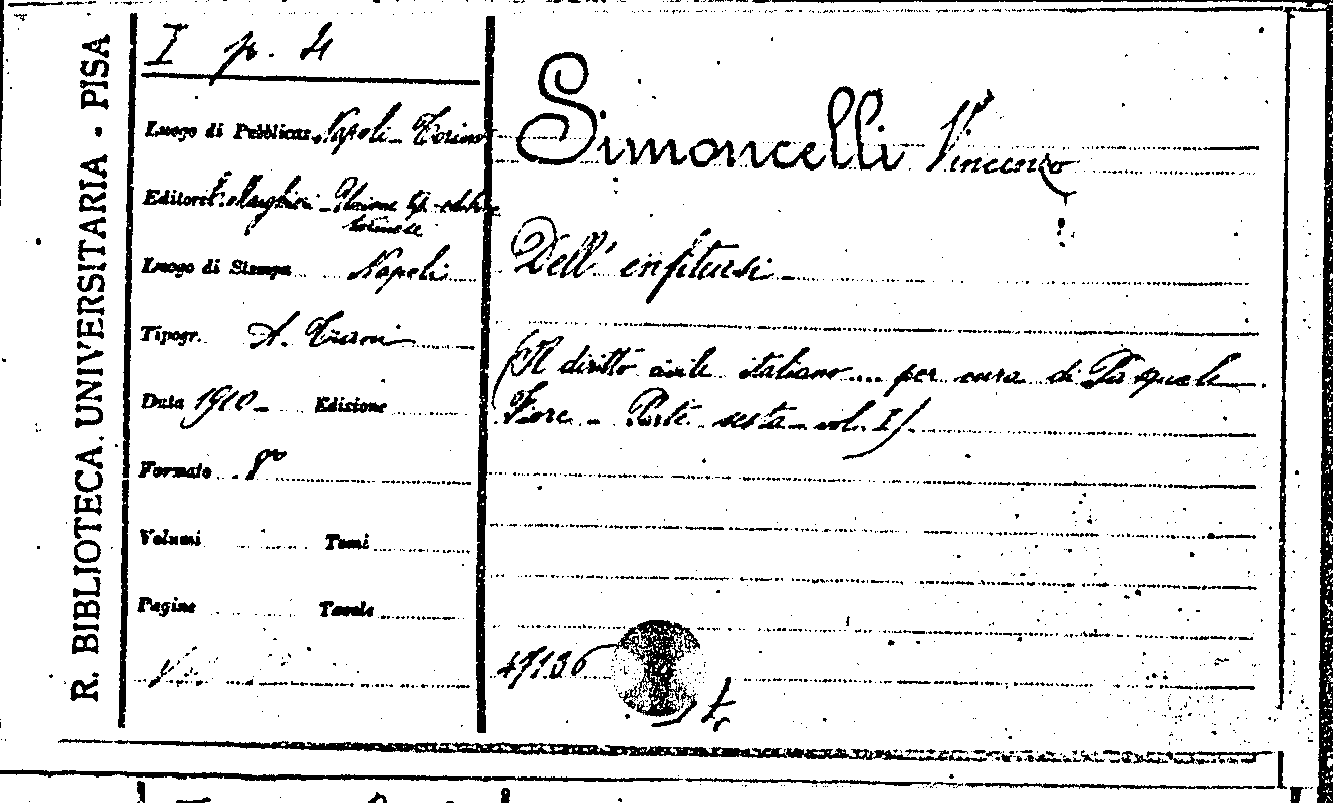 R. BIBLIOTECA UNIVERSITARIA - PISA
I p. 4
Luogo di Pubblicaz. Napoli - Torino
Editore E. Marghieri - Unione tip. editrice
torinese
Luogo di Stampa Napoli
Tipogr. A.
Data 1910 - Edizione
Formato 8°
Volumi Tomi
Pagine Tavole
Simoncelli Vincenzo
Dell' enfiteusi
(Il diritto civile italiano.... per cura di Pasquale
Fiore - Parte sesta - vol. I)